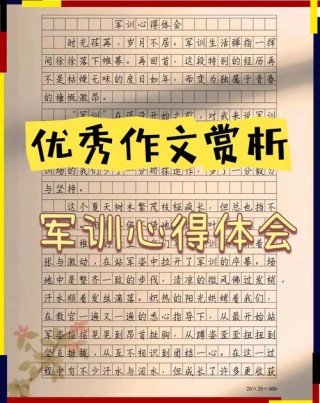 军训心得体会
时光荏苒，岁月不居。军训生活弹指一挥
间徐徐落下帷幕。再回首，这段特别的经历再
不是枯燥无味的度日如年，而变为独属于青春
的慷慨激昂。
优秀作文赏析
与坚持。
这个夏天树木繁茂枝桠疯长，但总也指不
军训心得体会
张与激动，在站军姿中拉开了军训的序幕。场
地中是整齐一致的步伐，清凉的微风佛过发梢
汗水顺着发丝滴落。炽热的阳光烘烤着我们，
在教官一遍又一遍的悉心指导下，从最开始站
军姿摇摇晃晃到昂首挺胸，从蹲姿歪歪扭扭到
坚直挺拔，从互不相识到团结一心。在这一过
程中不少汗水与泪水，但成长了许多更收获
20×20=400